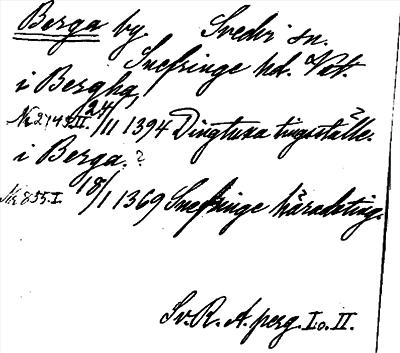 Berga by. Svedvi sn.
Snefringe hd. Vstm.
i Bergha
Nr 2743.II. 24/11 1394 Dingtuna tingställe.
i Berga. ?
Nr 855.I. 18/1 1369 Snefringe häradsting.
Sv. R. A. perg. I o. II.